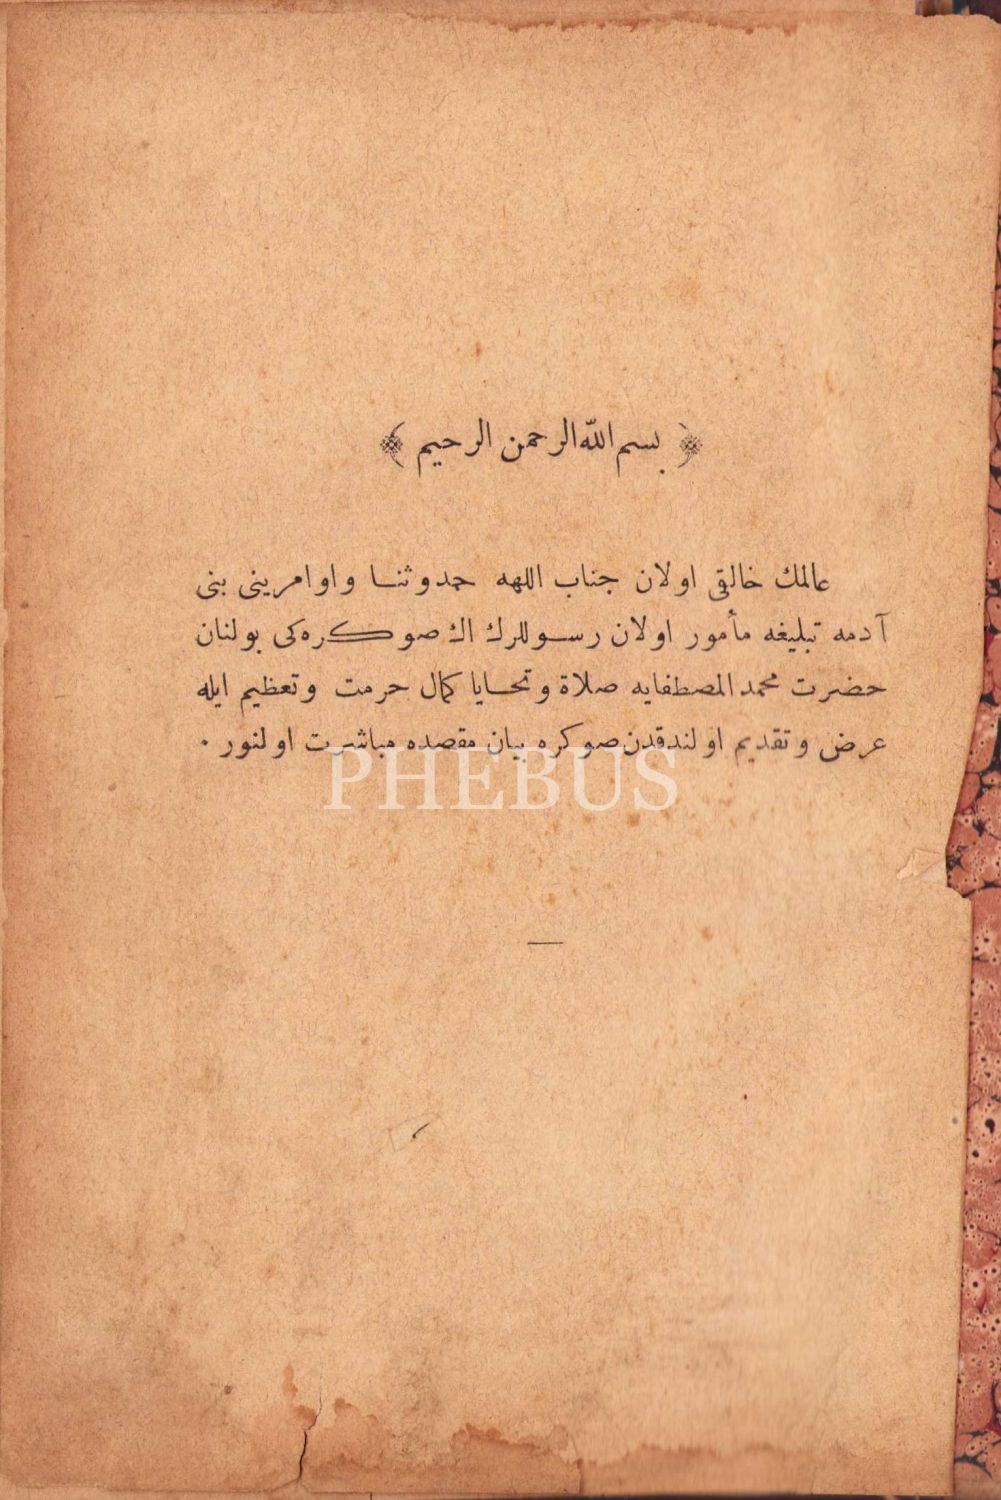 ﴿ بسم الله الرحمن الرحيم ﴾
عالمك خالقى اولان جناب اللهه حمد و ثنا و اوامرينى بنى
آدمه تبليغه مأمور اولان رسوللرك اك صوكره كى بولنان
حضرت محمد المصطفايه صلاة و تحايا كمال حرمت و تعظيم ايله
عرض و تقديم اولندقدن صوكره بيان مقصده مباشرت اولنور .
PHEBUS